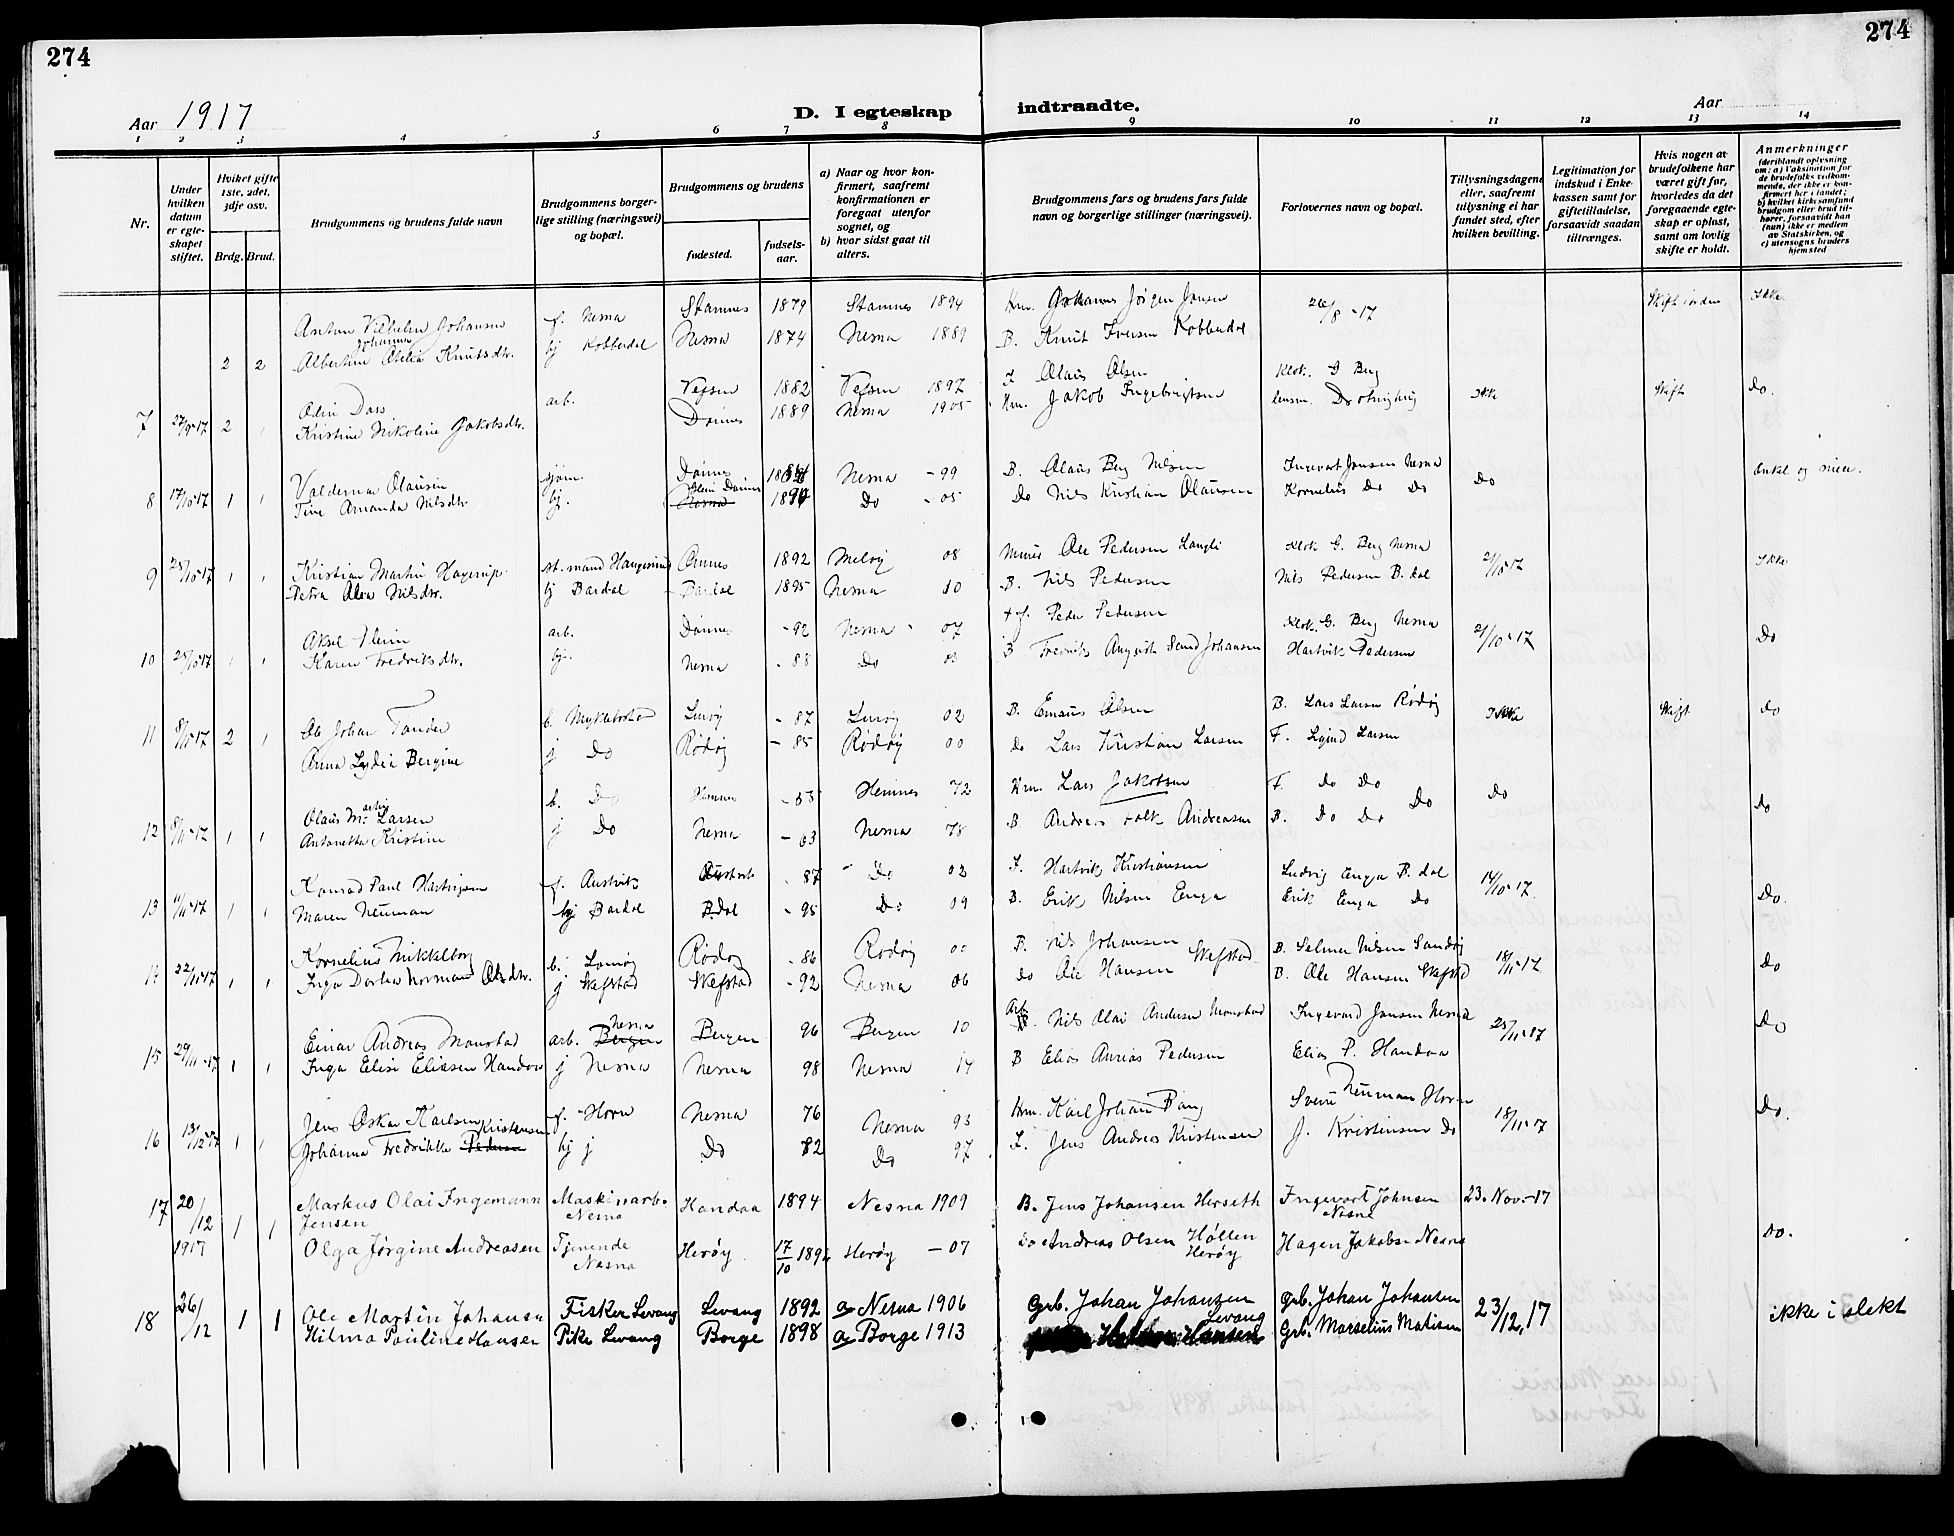 274
274
Aar 1917
D. I egteskap indtraadte.
Aar
1 2 3 4 5 6 7 8 9 10 11 12 13 14
Nr.
Under hvilken datum er egteskapet stiftet.
Hvilket gifte 1ste, 2det, 3dje osv.
Brdg. Brud.
Brudgommens og brudens fulde navn
Brudgommens borgerlige stilling (næringsvei) og bopæl.
Brudgommens og brudens
fødested.
fødselsaar.
a) Naar og hvor konfirmert, saafremt konfirmationen er foregaat utenfor sognet, og
b) hvor sidst gaat til alters.
Brudgommens fars og brudens fars fulde navn og borgerlige stillinger (næringsvei).
Forlovernes navn og bopæl.
Tillysningsdagene eller, saafremt tillysning ei har fundet sted, efter hvilken bevilling.
Legitimation for indskud i Enkekassen samt for giftetilladelse, forsaavidt saadan tiltrænges.
Hvis nogen av brudefolkene har været gift før, hvorledes da det foregaaende egteskap er opløst, samt om lovlig skifte er holdt.
Anmerkninger
(deriblandt oplysning om: a) Vaksination for de brudefolks vedkommende, der ikke er konfirmert her i landet; b) hvilket kirkesamfund brudgom eller brud tilhører, forsaavidt han (hun) ikke er medlem av Statskirken, og c) utensogns bruders hjemsted
Anton Vilhelm Johansen f. Nesna Stamnes 1879 Stamnes 1894 Hm. Johannes Jørgen Jensen 26/8-17 Ikke
2 2 Albertine Johanna Knutsdtr. hj Kobberdal Nesna 1874 Nesna 1889 B. Knut Iversen Kobberdal
Odin Dass arb. Vefsen 1882 Vefsen 1897 F Olaus Olsen Klok. G Berg
7 27/9-17 2 Kristine Nikoline Jakobsdtr. Dønnes 1889 Nesna 1905 Hm. Jakob Ingebrigtsen Ikke Skift Do.
Valdemar Olausen sjøm. Dønnes Nesna -99 B. Olaus Berg Nilsen Ingevart Jensen Nesna onkel og niese.
8 17/10-17 1 1 Tine Amanda Nilsdtr hj. Dønnes Do -05 Do Nils Kristian Olausen Kornelius Do Do Do
9 25/10-17 1 1 Kristian Martin Hagerup st.mand Haugesund 1892 Meløy 08 Ole Pedersen Langli Klok G. Berg Nesna 21/10-17 Ikke
Petra Nilsdtr. hj Bardal Bardal 1895 Nesna 10 B. Nils Pedersen Nils Pedersen B.dal
Aksel arb. Dønnes -92 Nesna 07 + f. Peder Pedersen Klok. G. Berg Nesna 21/10-17 Do
10 25/10-17 1 1 Karen Fredriksdtr. hj. Nesna -88 Do 03 B Fredrik August Johansen Hartvik Pedersen
11 8/11-17 2 1 Ole Johan Tander b. Myklebostad Lurøy -87 Lurøy 02 B. Olsen B. Lars Larsen Rødøy Ikke Skift Do
Anna Lydia Bergine j Do Rødøy -85 Rødøy 00 Do Lars Kristian Larsen F. Larsen
12 8/11-17 1 1 Olaus Martin Larsen b. Do Hemnes Hemnes 72 Hm. Lars Jakobsen F. Do Do Do Do
Antonetta Kristine j Do Nesna -63 Nesna 78 B. Andreas Andreasen B. Do Do Do
Konrad Paul Hartvigsen f. Austvik Austvik -87 Do 02 F Hartvik Kristiansen Ludvig Enga B.dal 14/10-17
13 11/11-17 1 1 Maren Neuman hj Bardal B.dal -95 Do 09 B. Erik Nilsen Enga Erik Enga Do Do.
Kornelius Mikkelborg b. Rødøy -86 Rødøy 00 B. Nils Johansen B. Selmer Nilsen Sandøy 18/11-17 Do
14 22/11-17 1 1 Inga Dortea Norman Olsdtr. j Skefstad Skefstad -92 Nesna 06 Do Ole Hansen Skefstad B. Ole Hansen Skefstad
Einar Andreas Monstad arb. Nesna Bergen 96 Bergen 10 Arb. Nils Olai Andersen Monstad Ingevard Jensen Nesna 25/11-17 Do
15 29/11-17 1 1 Inga Elise Eliasen Handaa j Nesna Nesna 98 Nesna 14 B Elias Pedersen Elias P. Handaa
Jens Oskar Karlsen f. Horn Nesna 76 Nesna 93 Hm. Karl Johan Bang Neuman Horn 18/11-17 Do.
16 13/12-17 1 1 Johanna Fredrikke Kristensen Pedersen hj j Do 82 Do 97 F. Jens Andreas Kristensen J. Kristensen Do
17 20/12 1917 1 1 Markus Olai Ingemann Jensen Maskinarb. Nesna Handaa 1894 Nesna 1909 B. Jens Johansen Herseth Ingevart Johnsen Nesne 23. Nov.-17
Olga Jørgine Andreasen Tjenende Nesna Herøy 17/10 Herøy -07 Do Andreas Olsen Høllen Herøy Hagen Jakobsen Nesna Do.
18 26/12 1 1 Ole Martin Johansen Fisker Levang Levang 1892 a Nesna 1906 Grb. Johan Johansen Levang Grb. Johan Johansen 23/12,17 ikke i slekt
Hilma Pauline Hansen Pike Levang Borge 1898 a Borge 1913 Hansen Grb. Marselius Matisen